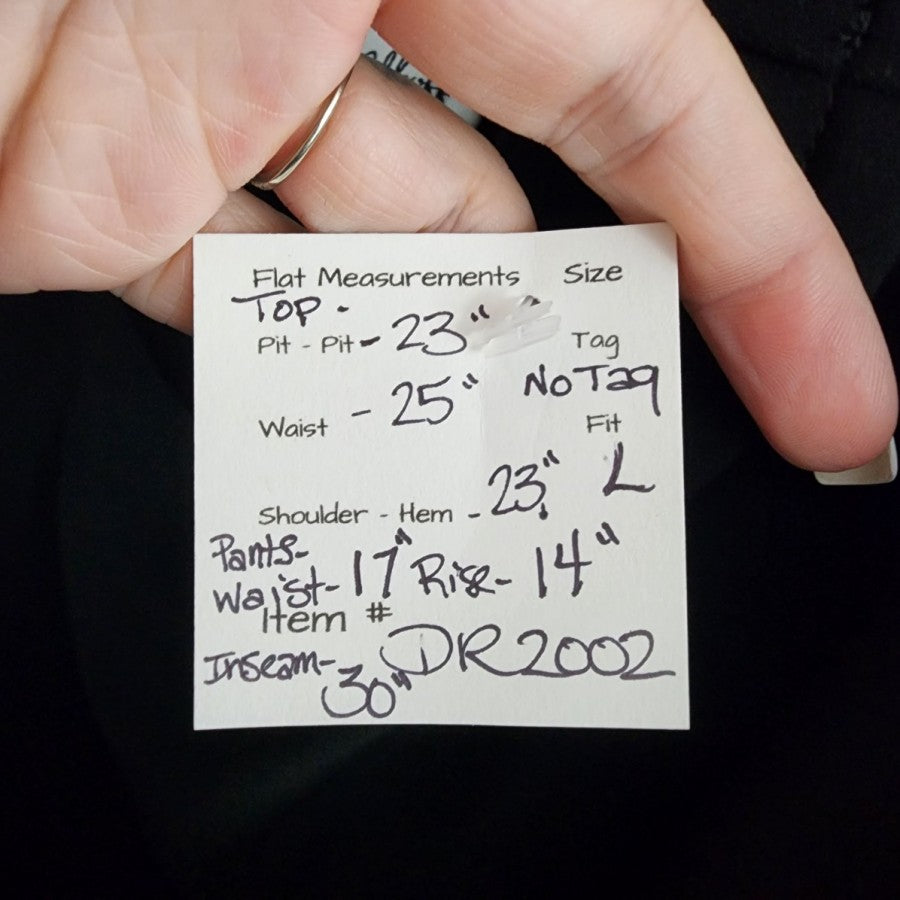 Flat Measurements Size
Top -
Pit - Pit - 23"
Tag
No Tag
Waist - 25"
Fit
L
Shoulder - Hem - 23"
Pants-
Waist- 17" Rise- 14"
Item #
DR2002
Inseam-
30"